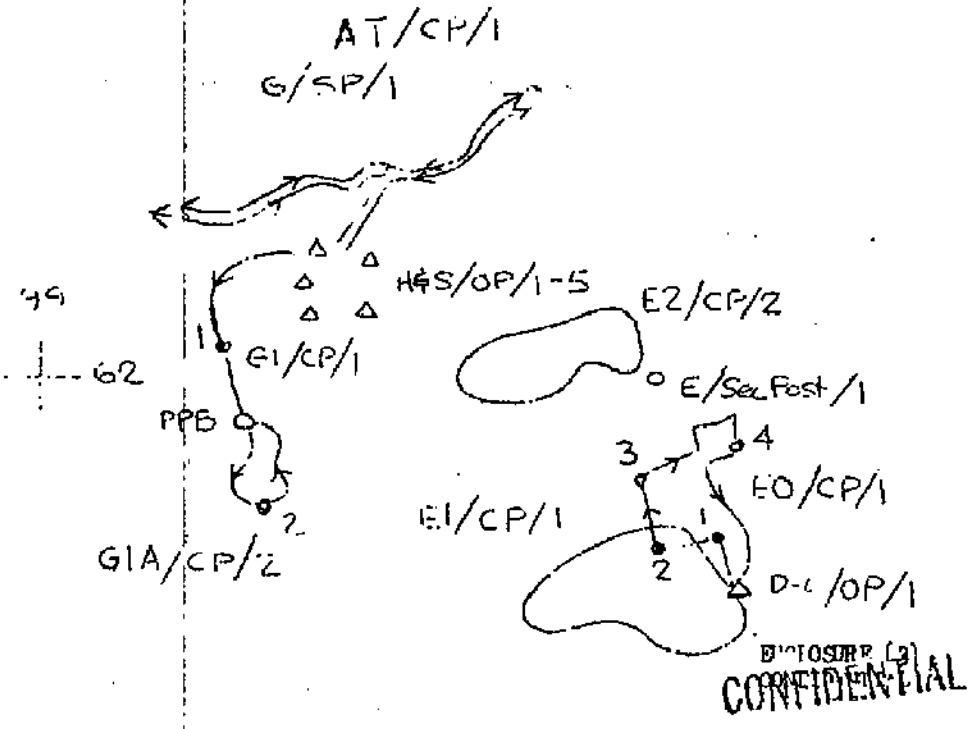 AT/CP/1
G/SP/1
H&S/OP/1-5
E2/CP/2
1
G1/CP/1
62
E/Sec Post/1
PPB
4
3
E0/CP/1
E1/CP/1
1
2
2
G1A/CP/2
/OP/1
ENCLOSURE (3)
CONFIDENTIAL